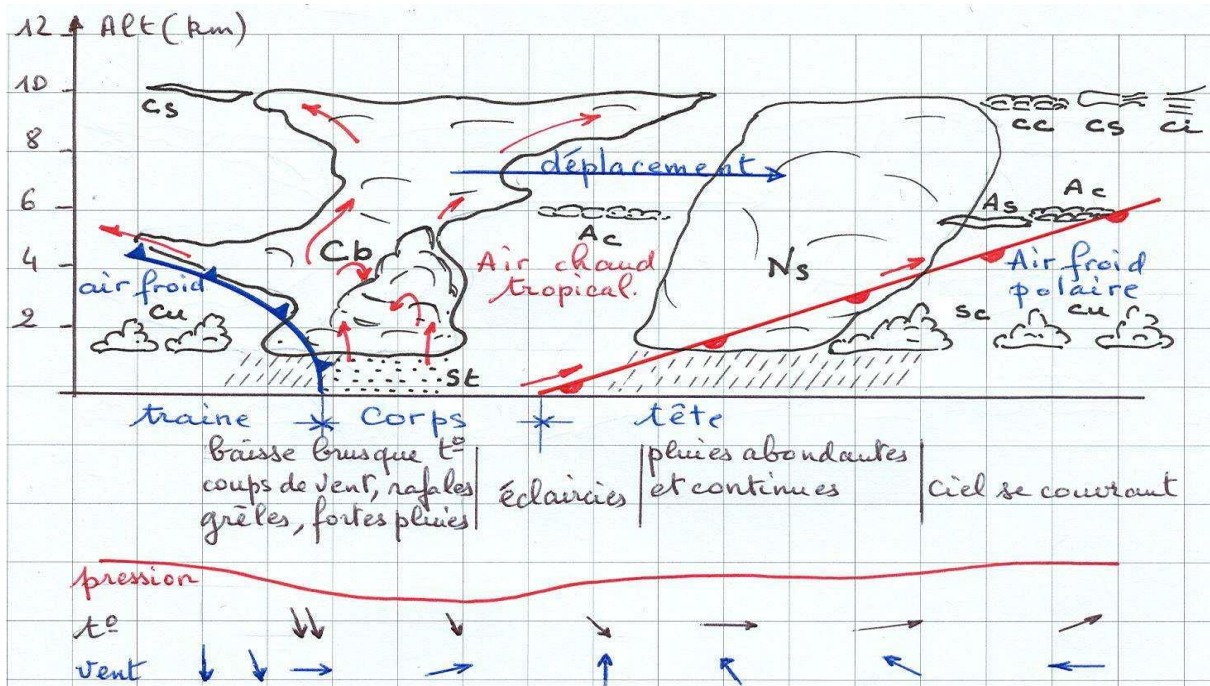 12 Alt (km)
10
8
6
4
2
Cs
cc cs ci
déplacement
Ac
As Ac
Cb
Air chaud
tropical.
Ns
Air froid
polaire
air froid
cu
sc cu
St
traine corps tête
baisse brusque tº
coups de vent, rafales
grêles, fortes pluies
éclaircies
pluies abondantes
et continues
ciel se couvrant
pression
tº
vent